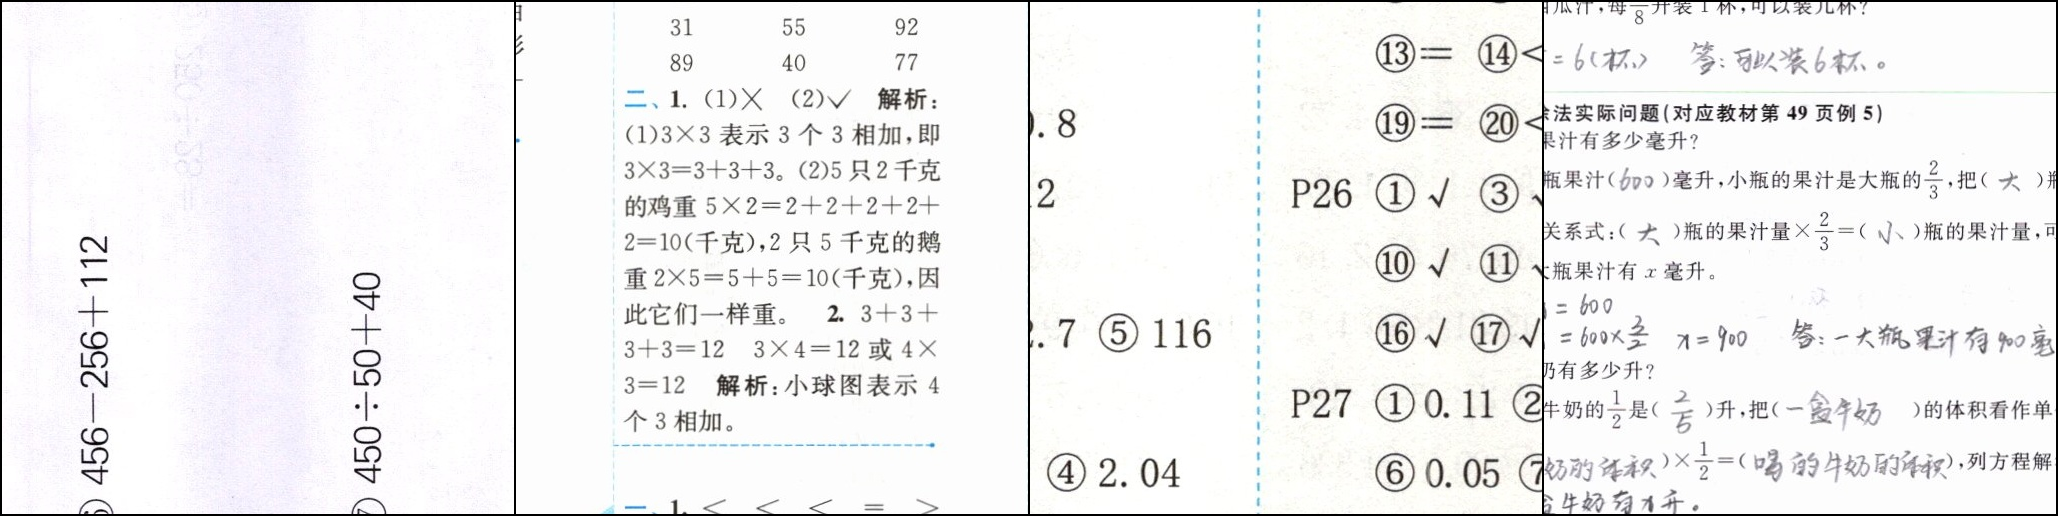 456－256＋112
450÷50＋40
31 55 92
89 40 77
二、1. (1)× (2)√ 解析：
(1)3×3 表示 3 个 3 相加，即
3×3=3+3+3。(2)5 只 2 千克
的鸡重 5×2=2+2+2+2+
2=10(千克)，2 只 5 千克的鹅
重 2×5=5+5=10(千克)，因
此它们一样重。 2. 3+3+
3+3=12 3×4=12 或 4×
3=12 解析：小球图表示 4
个 3 相加。
一、1. < < < = >
⑬= ⑭<
.8 ⑲= ⑳<
2 P26 ①√ ③
⑩√ ⑪
.7 ⑤116 ⑯√ ⑰√
P27 ①0.11 ②
④2.04 ⑥0.05 ⑦
瓜汁，每 /8 升装 1 杯，可以装几杯？
=6(杯) 答：可以装6杯。
法实际问题(对应教材第 49 页例 5)
果汁有多少毫升？
瓶果汁(600)毫升，小瓶的果汁是大瓶的2/3，把(大)
关系式：(大)瓶的果汁量×2/3=(小)瓶的果汁量，可
瓶果汁有 x 毫升。
=600
=600×3/2 x=900 答：一大瓶果汁有900毫
奶有多少升？
牛奶的1/2是(2/5)升，把(一盒牛奶)的体积看作单
奶的体积)×1/2=(喝的牛奶的体积)，列方程解
盒牛奶有x升。